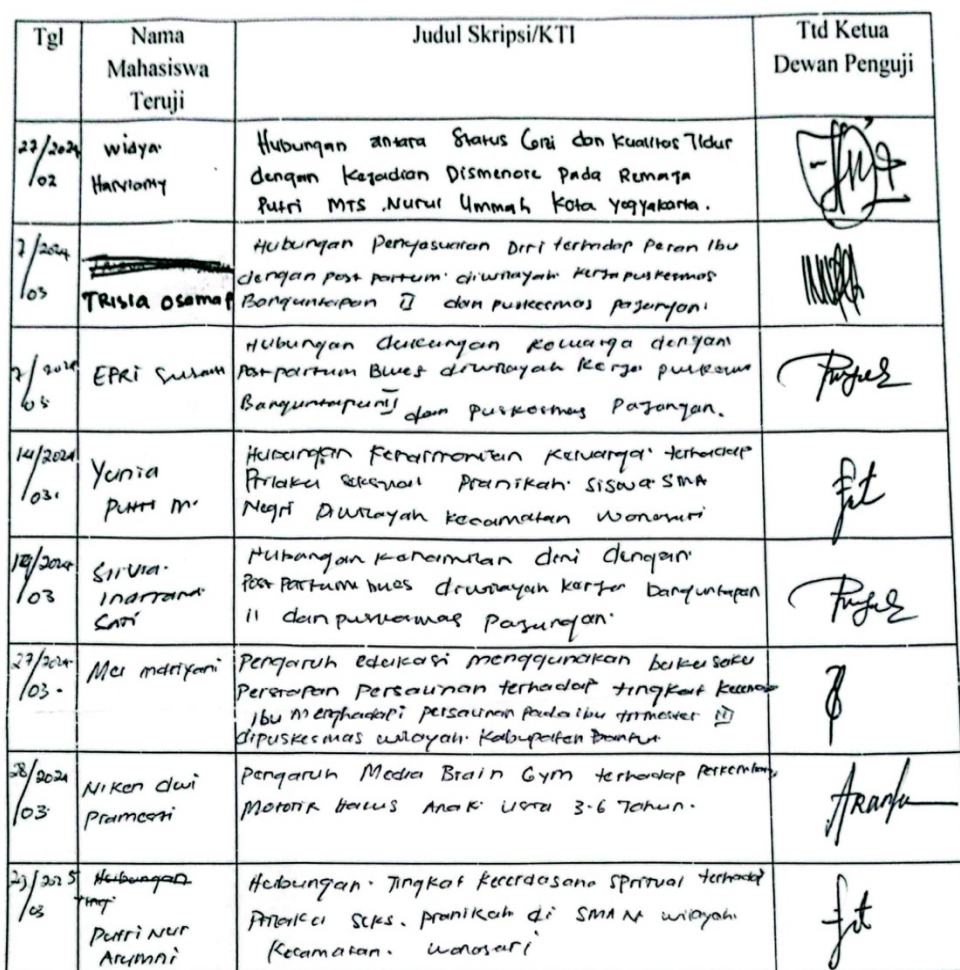 Tgl
Nama
Mahasiswa
Teruji
Judul Skripsi/KTI
Ttd Ketua
Dewan Penguji
27/2024
/02
Widya
Harviamy
Hubungan antara Status Gizi dan Kualitas Tidur
dengan Kejadian Dismenore Pada Remaja
Putri MTS Nurul Ummah Kota Yogyakarta.
7/2024
/03
TRISIA OSAMAP
Hubungan Penyesuaian Diri terhadap Peran Ibu
dengan post partum diwilayah kerja puskesmas
Banguntapan II dan puskesmas pajangan.
7/2024
EPRI
Hubungan dukungan keluarga dengan
Postpartum Blues diwilayah Kerja puskesmas
Banguntapan II dan Puskesmas Pajangan.
14/2024
/03.
Yunia
Putri M.
Hubungan Keharmonisan Keluarga terhadap
Prilaku seksual Pranikah siswa SMA
Negri Diwilayah Kecamatan Wonosari
19/2024
/03
Silvia
Sari
Hubungan Kehamilan dini dengan
Post Partum blues diwilayah kerja banguntapan
II dan puskesmas pajangan.
27/2024
/03.
Mei
Pengaruh edukasi menggunakan buku saku
Persiapan Persalinan terhadap tingkat
Ibu Menghadapi persalinan pada ibu trimester III
dipuskesmas wilayah Kabupaten Bantul
28/2024
/03
Niken dwi
Pramesti
Pengaruh Media Brain Gym terhadap
Motorik Halus Anak Usia 3-6 Tahun.
29/2025
/03
Hubungan
Putri Nur
Arumni
Hubungan Tingkat kecerdasan Spritual terhadap
Prilaku Seks pranikah di SMA N wilayah
Kecamatan wonosari